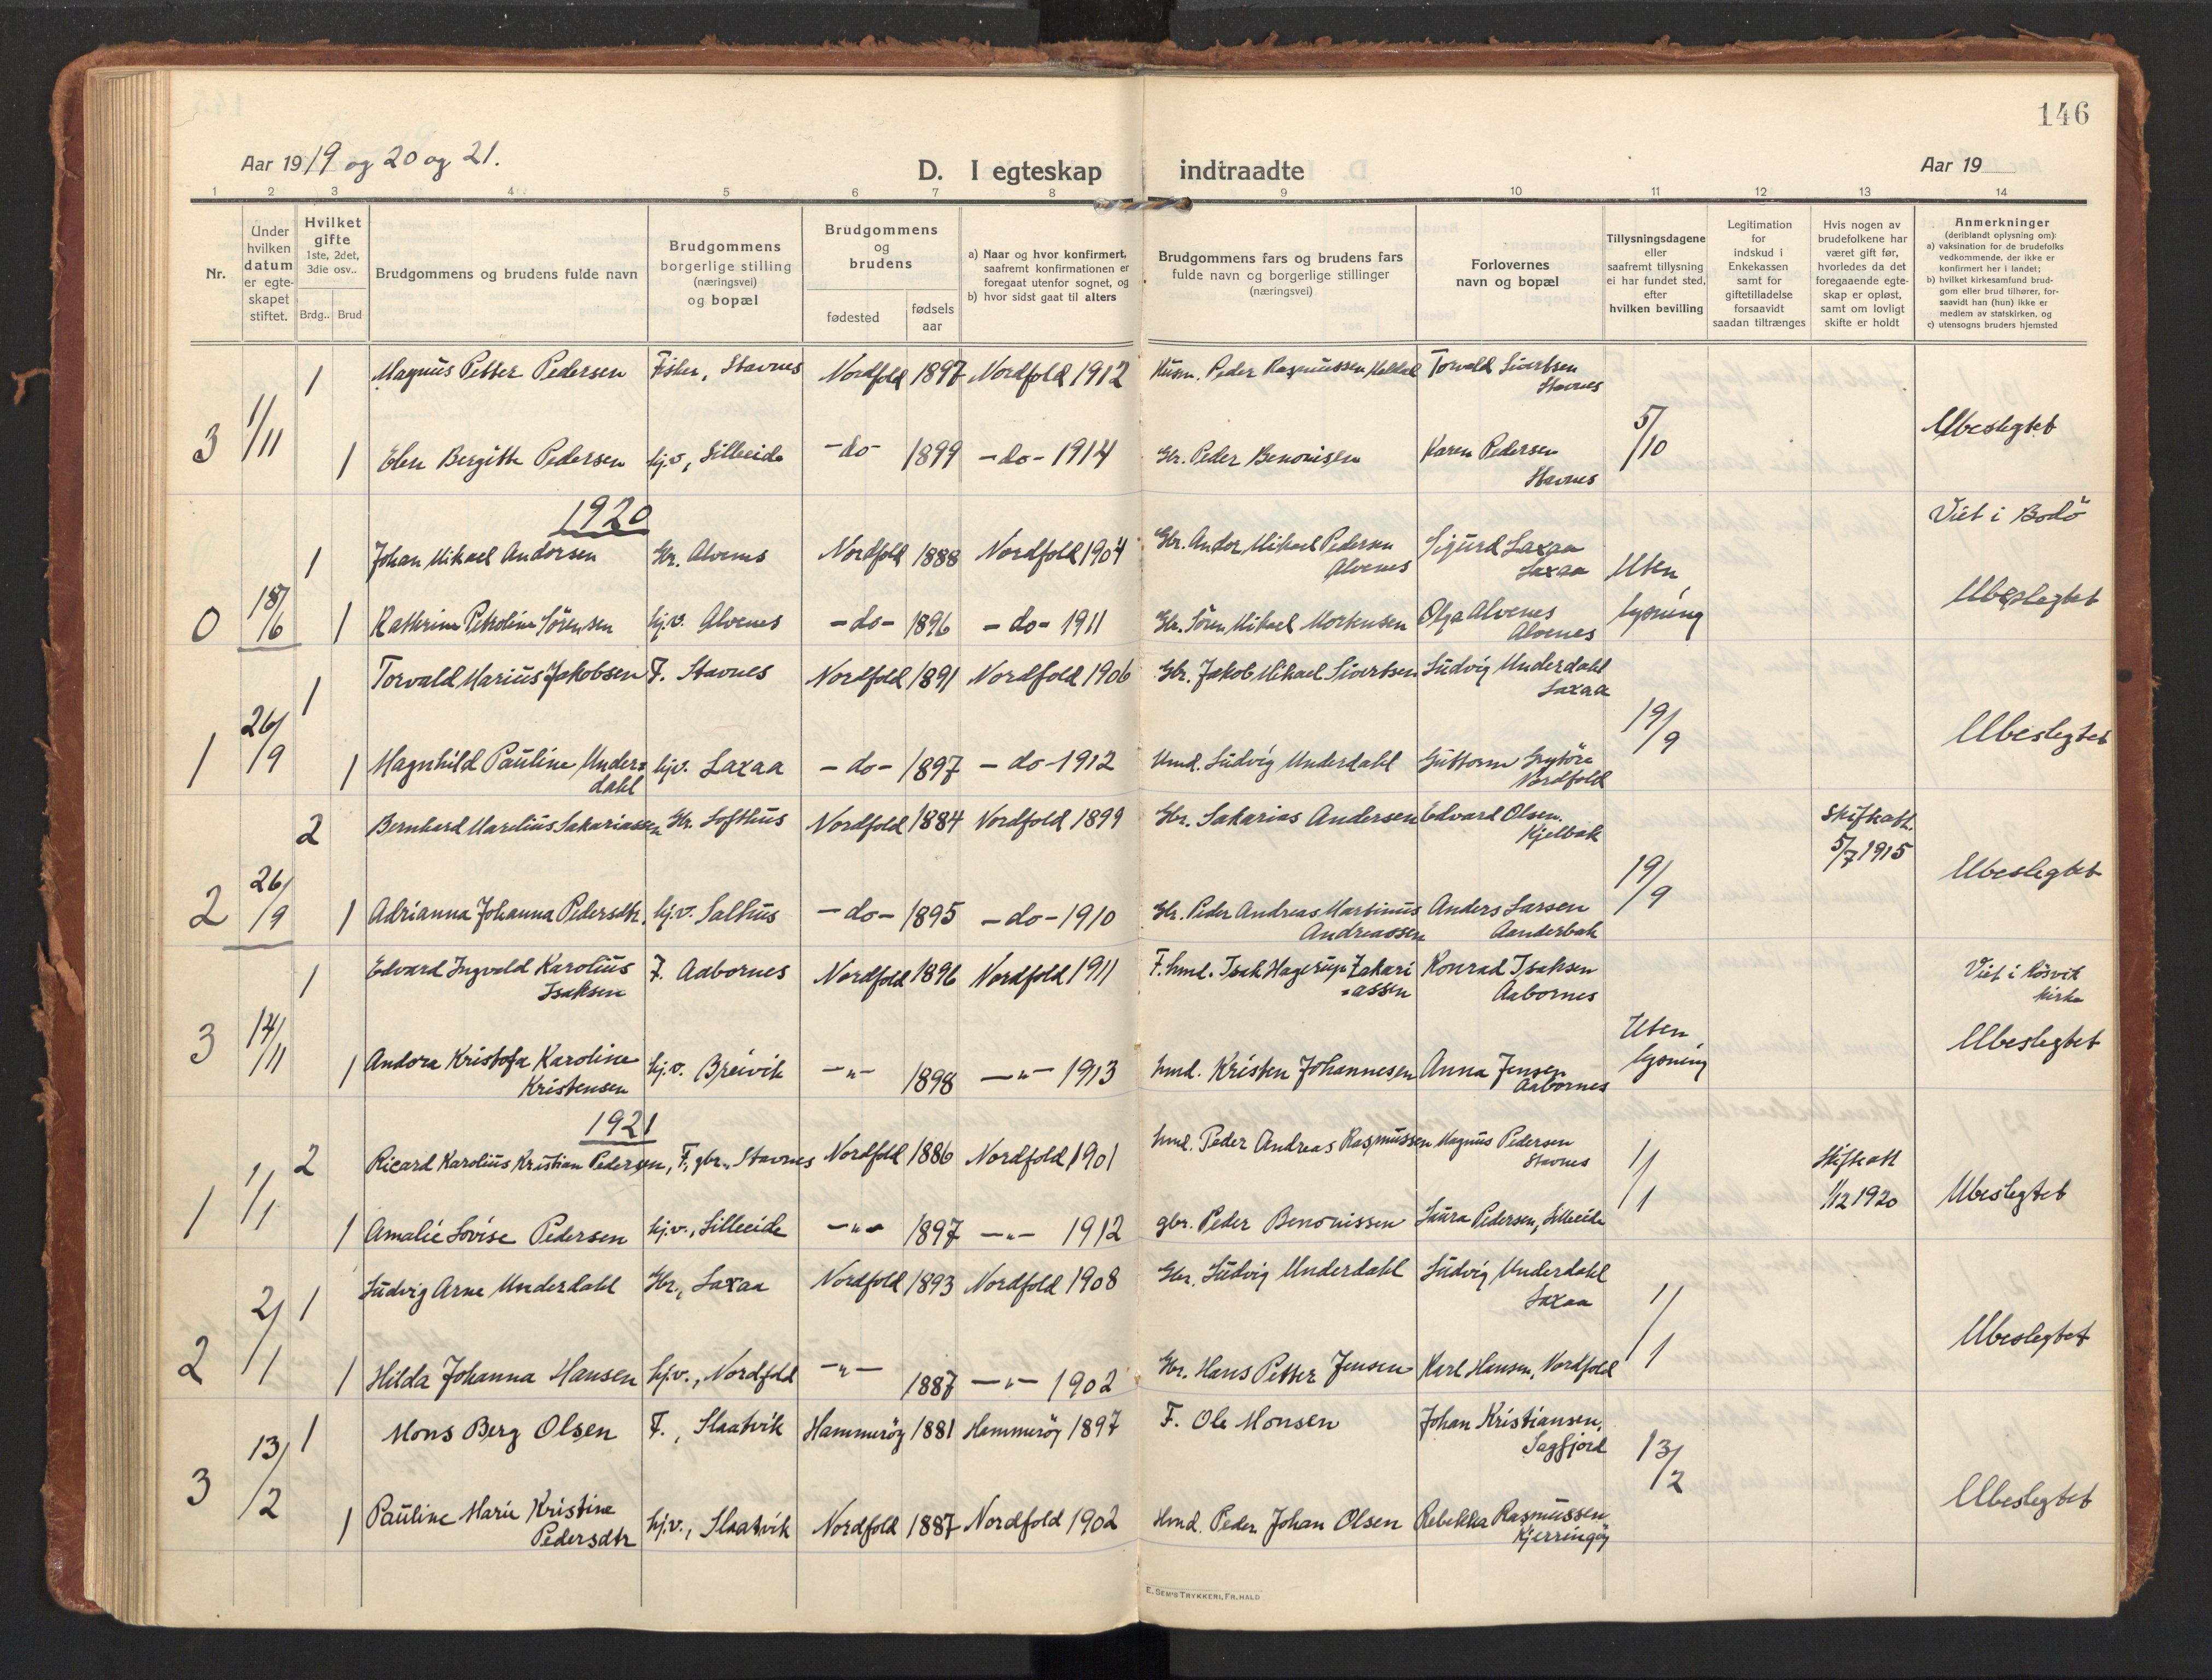 146
Aar 1919 og 20 og 21.
D. I egteskap indtraadte
Aar 19
1 2 3 4 5 6 7 8 9 10 11 12 13 14
Nr.
Under hvilken datum er egte-skapet stiftet.
Hvilket gifte 1ste, 2det, 3die osv..
Brdg.. Brud
Brudgommens og brudens fulde navn
Brudgommens borgerlige stilling (næringsvei) og bopæl
Brudgommens og brudens
fødested
fødsels aar
a) Naar og hvor konfirmert, saafremt konfirmationen er foregaat utenfor sognet, og
b) hvor sidst gaat til alters
Brudgommens fars og brudens fars fulde navn og borgerlige stillinger (næringsvei)
Forlovernes navn og bopæl
Tillysningsdagene eller saafremt tillysning ei har fundet sted, efter hvilken bevilling
Legitimation for indskud i Enkekassen samt for giftetilladelse forsaavidt saadan tiltrænges
Hvis nogen av brudefolkene har været gift før, hvorledes da det foregaaende egte-skap er opløst, samt om lovligt skifte er holdt
Anmerkninger (deriblandt oplysning om):
a) vaksination for de brudefolks vedkommende, der ikke er konfirmert her i landet;
b) hvilket kirkesamfund brud-gom eller brud tilhører, for-saavidt han (hun) ikke er medlem av statskirken, og
c) utensogns bruders hjemsted
1 Magnus Petter Pedersen Fisker, Stavnes Nordfold 1897 Nordfold 1912 Husm. Peder Rasmussen Torvald Sivertsen
Stavnes
3 1/11 5/10 Ubeslegtet
1 Elen Bergitte Pedersen hj.v., Lilleeide -do- 1899 -do- 1914 Gbr. Peder Benonisen Karen Pedersen
Stavnes
1920
Viet i Bodö
1 Johan Mikael Andorsen Gbr. Alvenes Nordfold 1888 Nordfold 1904 Gbr. Andor Mikael Pedersen Sigurd Laxaa
Alvenes Laxaa Uten
0 18/6 1 Kathrine Petroline Sörensen hj.v. Alvenes -do- 1896 -do- 1911 Gbr. Sören Mikael Mortensen Olga Alvenes lysning Ubeslegtet
Alvenes
1 Torvald Marius Jakobsen F. Stavnes Nordfold 1891 Nordfold 1906 Gbr. Jakob Mikael Sivertsen Ludvig Underdahl
Laxaa
1 26/9 19/9 Ubeslegtet
1 Magnhild Pauline Under= hj.v. Laxaa -do- 1897 -do- 1912 Hmd. Ludvig Underdahl Guttorm Grytöre
dahl Nordfold
2 Bernhard Marelius Sakariassen Gbr. Softhus Nordfold 1884 Nordfold 1899 Gbr. Sakarias Andersen Edvard Olsen. Skifteatt.
Kjelbak 5/7 1915
2 26/9 19/9 Ubeslegtet
1 Adrianna Johanna Pedersdtr. hj.v. Salhus -do- 1895 -do- 1910 Gbr. Peder Andreas Martinus Anders Larsen
Andreassen Aanderbak
1 Edvard Ingvald Karolius F. Aabornes Nordfold 1896 Nordfold 1911 F. hmd. Isak Hagerup Zakari Konrad Isaksen Viet i Rösvik
Isaksen =assen Aabornes kirke
3 14/11 Uten Ubeslegtet
1 Andora Kristofa Karoline hj.v. Breivik -"- 1898 -"- 1913 hmd. Kristen Johannesen Anna Jensen lysning
Kristensen Aabornes
1921
2 Ricard Karolius Kristian Pedersen, F, gbr., Stavnes Nordfold 1886 Nordfold 1901 hmd. Peder Andreas Rasmussen Magnus Pedersen Skifteatt
Stavnes 1/12 1920
1 1/1 1/1 Ubeslegtet
1 Amalie Lovise Pedersen hj.v., Lilleeide -"- 1897 -"- 1912 gbr. Peder Benonissen Laura Pedersen, Lilleeide
1 Ludvig Arne Underdahl Gbr., Laxaa Nordfold 1893 Nordfold 1908 Gbr. Ludvig Underdahl Ludvig Underdahl
Laxaa
2 2/1 1/1 Ubeslegtet
1 Hilda Johanna Hansen hj.v., Nordfold -"- 1887 -"- 1902 Gbr. Hans Petter Jensen Karl Hansen, Nordfold
1 Mons Berg Olsen F., Slaatvik Hammeröy 1881 Hammeröy 1897 F. Ole Monsen Johan Kristiansen,
Sagfjord
3 13/2 13/2 Ubeslegtet
1 Pauline Marie Kristine hj.v., Slaatvik Nordfold 1887 Nordfold 1902 Hmd. Peder Johan Olsen Rebekka Rasmussen
Pedersdtr Kjerringöy
E. SEM'S TRYKKERI, FR.HALD